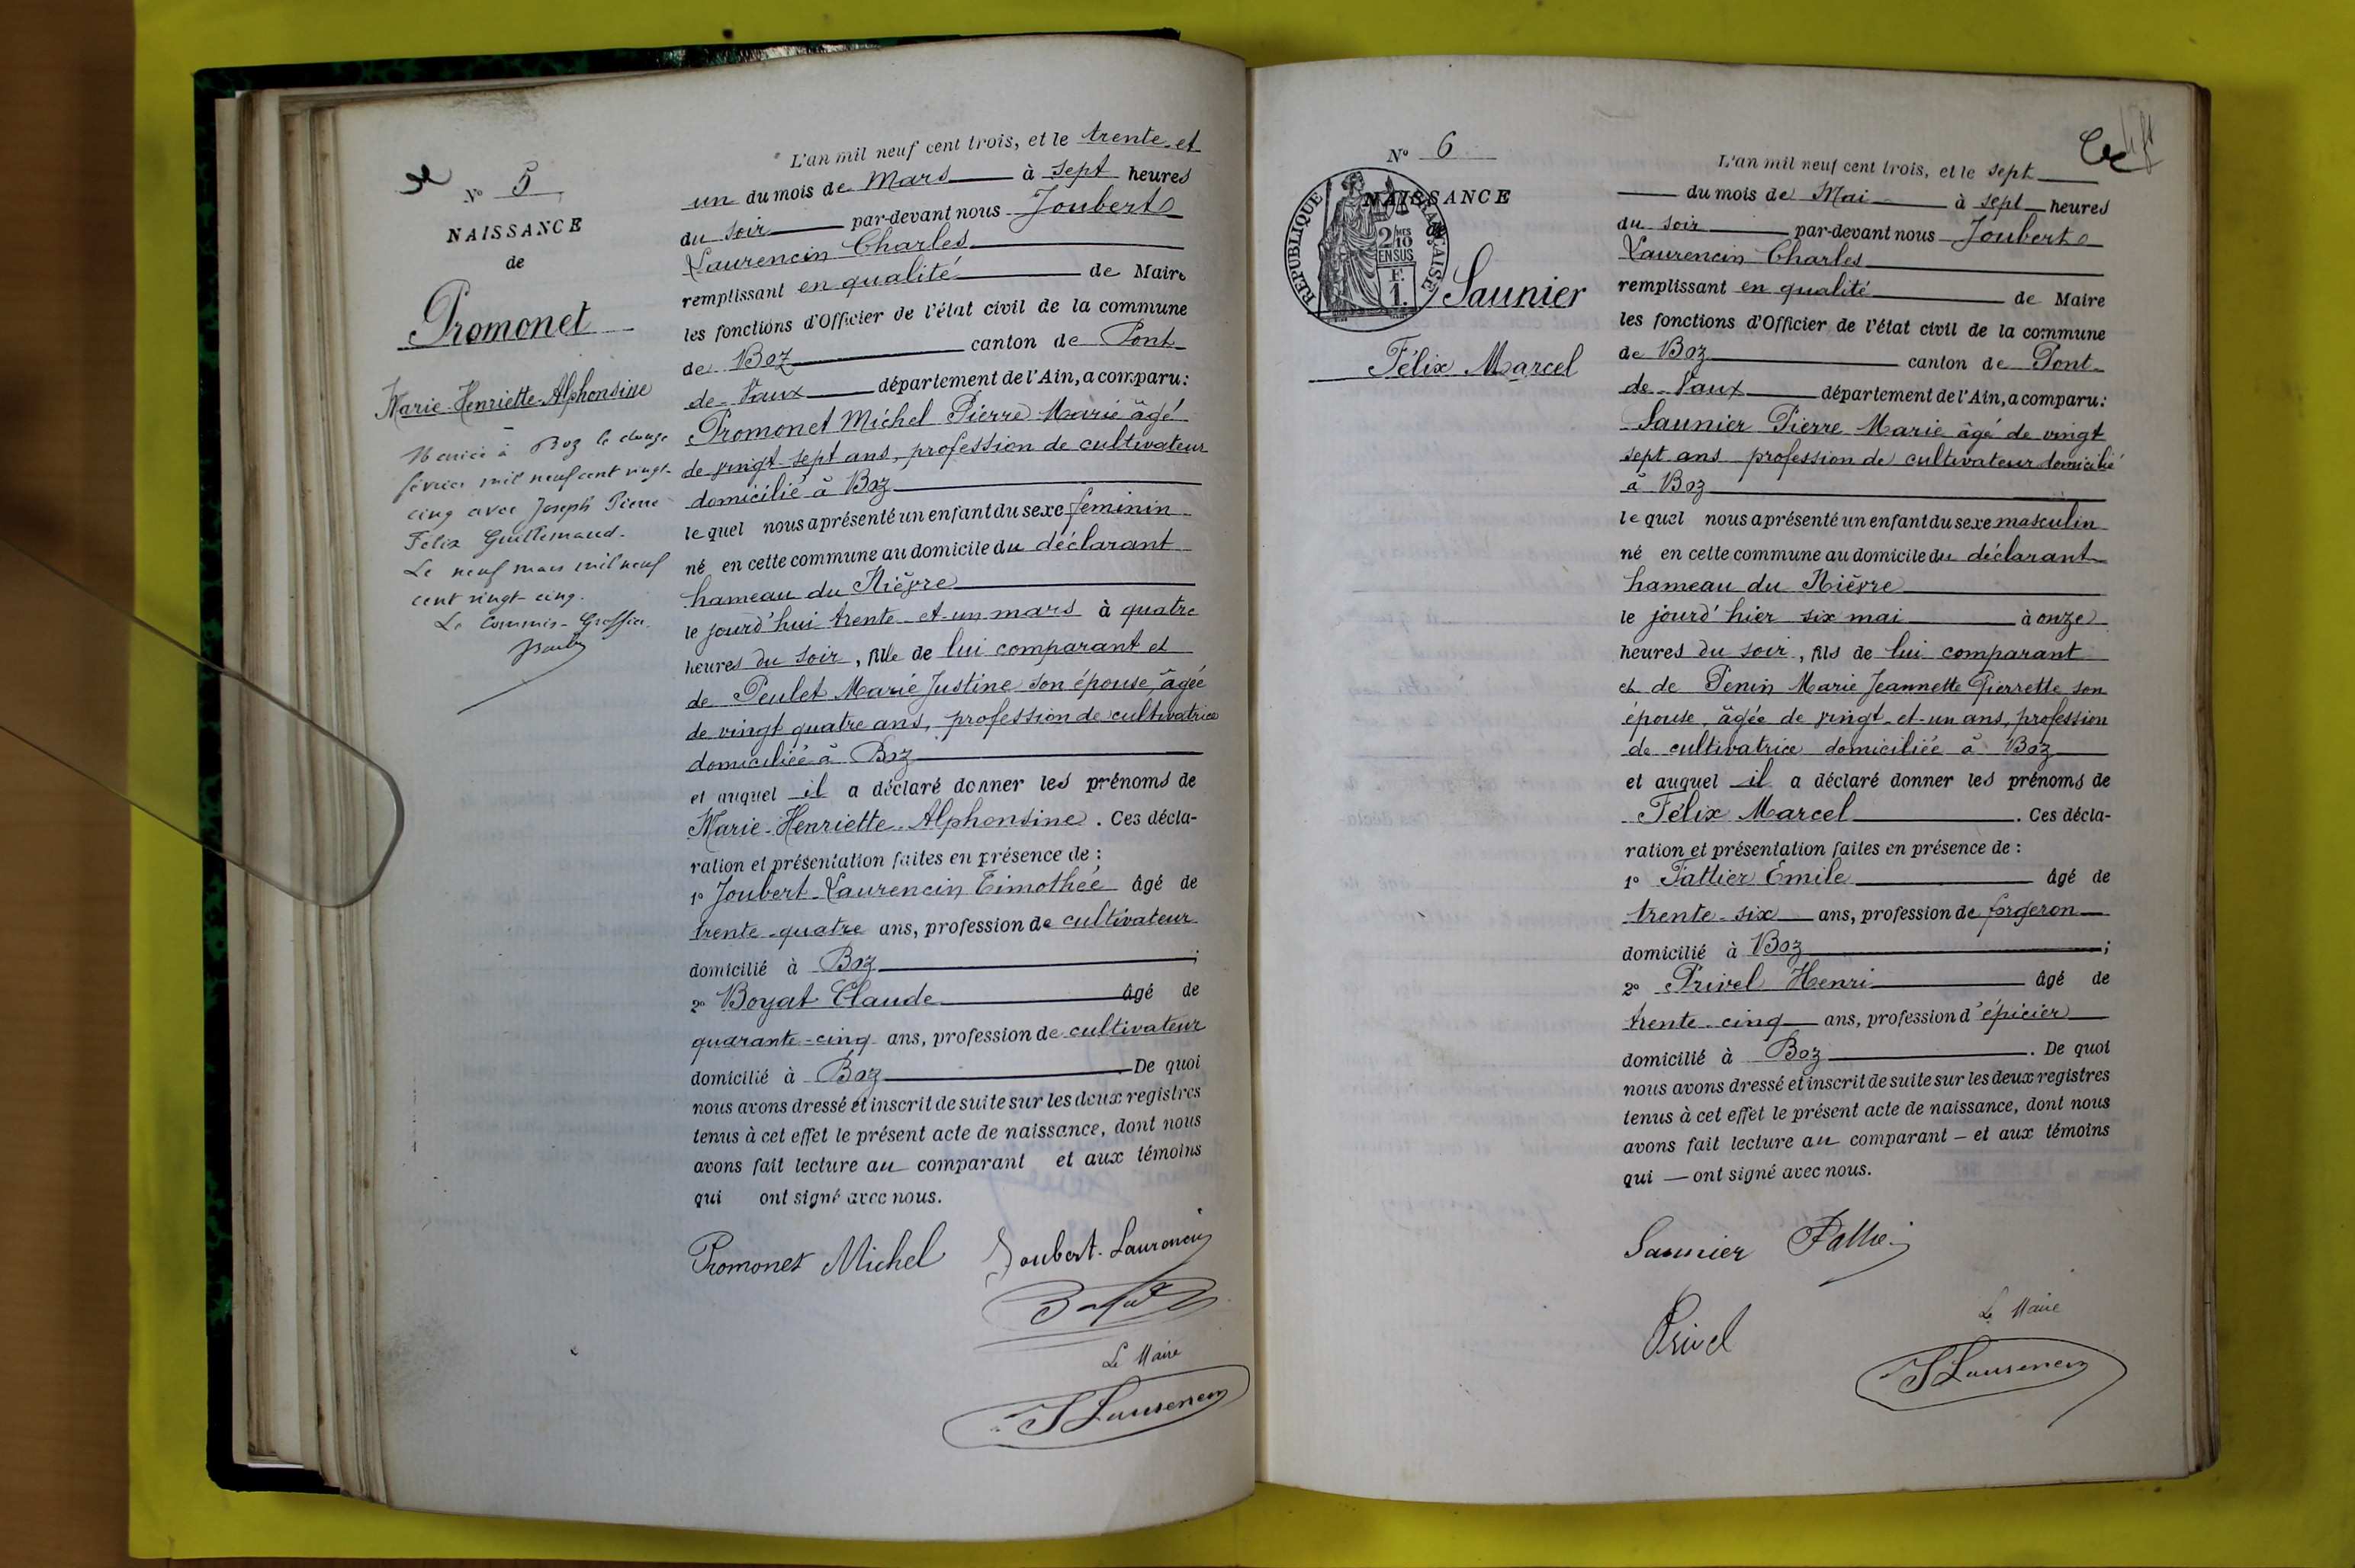 N° 5
NAISSANCE
de
Promonet
Marie-Henriette-Alphonsine
Mariée à Boz le douze
février mil neuf cent vingt-
cinq avec Joseph Pierre
Félix Guillemaud.
Le neuf mars mil neuf
cent vingt-cinq.
Le Commis-Greffier
L'an mil neuf cent trois, et le trente et
un du mois de Mars à sept heures
du soir par-devant nous Joubert
Laurencin Charles
remplissant en qualité de Maire
les fonctions d'Officier de l'état civil de la commune
de Boz canton de Pont
de-Vaux département de l'Ain, a comparu:
Promonet Michel Pierre Marie âgé
de vingt-sept ans, profession de cultivateur
domicilié à Boz
lequel nous a présenté un enfant du sexe féminin
né en cette commune au domicile du déclarant
hameau du
le jourd'hui trente-et-un mars à quatre
heures du soir, fille de lui comparant et
de Peulet Marie Justine son épouse, âgée
de vingt quatre ans, profession de cultivatrice
domiciliée à Boz
et auquel il a déclaré donner les prénoms de
Marie-Henriette-Alphonsine. Ces décla-
ration et présentation faites en présence de :
1° Joubert-Laurencin Timothée âgé de
trente-quatre ans, profession de cultivateur
domicilié à Boz ;
2° Boyat Claude âgé de
quarante-cinq ans, profession de cultivateur
domicilié à Boz De quoi
nous avons dressé et inscrit de suite sur les deux registres
tenus à cet effet le présent acte de naissance, dont nous
avons fait lecture au comparant et aux témoins
qui ont signé avec nous.
Promonet Michel Joubert-Laurencin
Le Maire
N° 6
NAISSANCE
RÉPUBLIQUE FRANÇAISE
2/10
EN SUS
F.
1.
Saunier
Félix Marcel
L'an mil neuf cent trois, et le sept
du mois de Mai à sept heures
du soir par-devant nous Joubert
Laurencin Charles
remplissant en qualité de Maire
les fonctions d'Officier de l'état civil de la commune
de Boz canton de Pont
de-Vaux département de l'Ain, a comparu:
Saunier Pierre Marie âgé de vingt
sept ans profession de cultivateur domicilié
à Boz
lequel nous a présenté un enfant du sexe masculin
né en cette commune au domicile du déclarant
hameau du
le jourd'hier six mai à onze
heures du soir, fils de lui comparant
et de Penin Marie Jeannette Pierrette son
épouse, âgée de vingt-et-un ans, profession
de cultivatrice domiciliée à Boz
et auquel il a déclaré donner les prénoms de
Félix Marcel. Ces décla-
ration et présentation faites en présence de :
1° Pattier Émile âgé de
trente-six ans, profession de forgeron
domicilié à Boz ;
2° Privel Henri âgé de
trente-cinq ans, profession d'épicier
domicilié à Boz. De quoi
nous avons dressé et inscrit de suite sur les deux registres
tenus à cet effet le présent acte de naissance, dont nous
avons fait lecture au comparant - et aux témoins
qui - ont signé avec nous.
Saunier
Privel
Le Maire